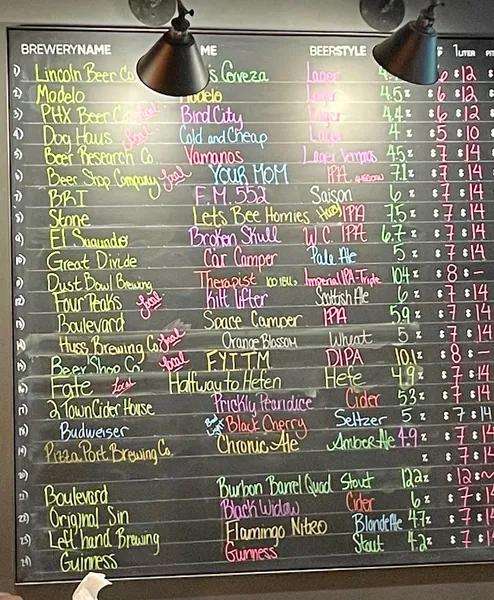 BREWERYNAME ME BEERSTYLE 1 LITER
1) Lincoln Beer Co. 's Cerveza Lager $12
2) Modelo Modelo 4.5% $6 $12
3) PHX Beer Co. local Bird City Lager 4.4% $6 $12
4) Dog Haus local Cold and Cheap Lager 4% $5 $10
5) Beer Research Co. Vamanos Lager 4.5% $7 $14
6) Beer Shop Company local YOUR MOM IPA 7.1% $7 $14
7) BRI F.M. 552 Saison 6% $7 $14
8) Stone Let's Bee Homies Hazy IPA 7.5% $7 $14
9) El Segundo Broken Skull W.C. IPA 6.7% $7 $14
10) Great Divide Car Camper Pale Ale 5% $7 $14
11) Dust Bowl Brewing Therapist 100 IBUs Imperial IPA-Triple 10.4% $8 $-
12) Four Peaks local Kilt Lifter Scottish Ale 6% $7 $14
13) Boulevard Space Camper IPA 5.9% $7 $14
14) Huss Brewing Co. local Orange Blossom Wheat 5% $7 $14
15) Beer Shop Co. local FYITM DIPA 10.1% $8 $-
16) Fate local Halfway to Hefen Hefe 4.9% $7 $14
17) 2 Town Cider House Prickly Pearadice Cider 5.3% $7 $14
18) Budweiser Bud Light Black Cherry Seltzer 5% $7 $14
19) Pizza Port Brewing Co. Chronic Ale Amber Ale 4.9% $7 $14
20) % $7 $14
21) Boulevard Burbon Barrel Quad Stout 12.2% $12 $~
22) Original Sin Black Widow Cider 6% $7 $14
23) Left hand Brewing Flamingo Nitro Blonde Ale 4.7% $7 $14
24) Guinness Guinness Stout 4.2% $7